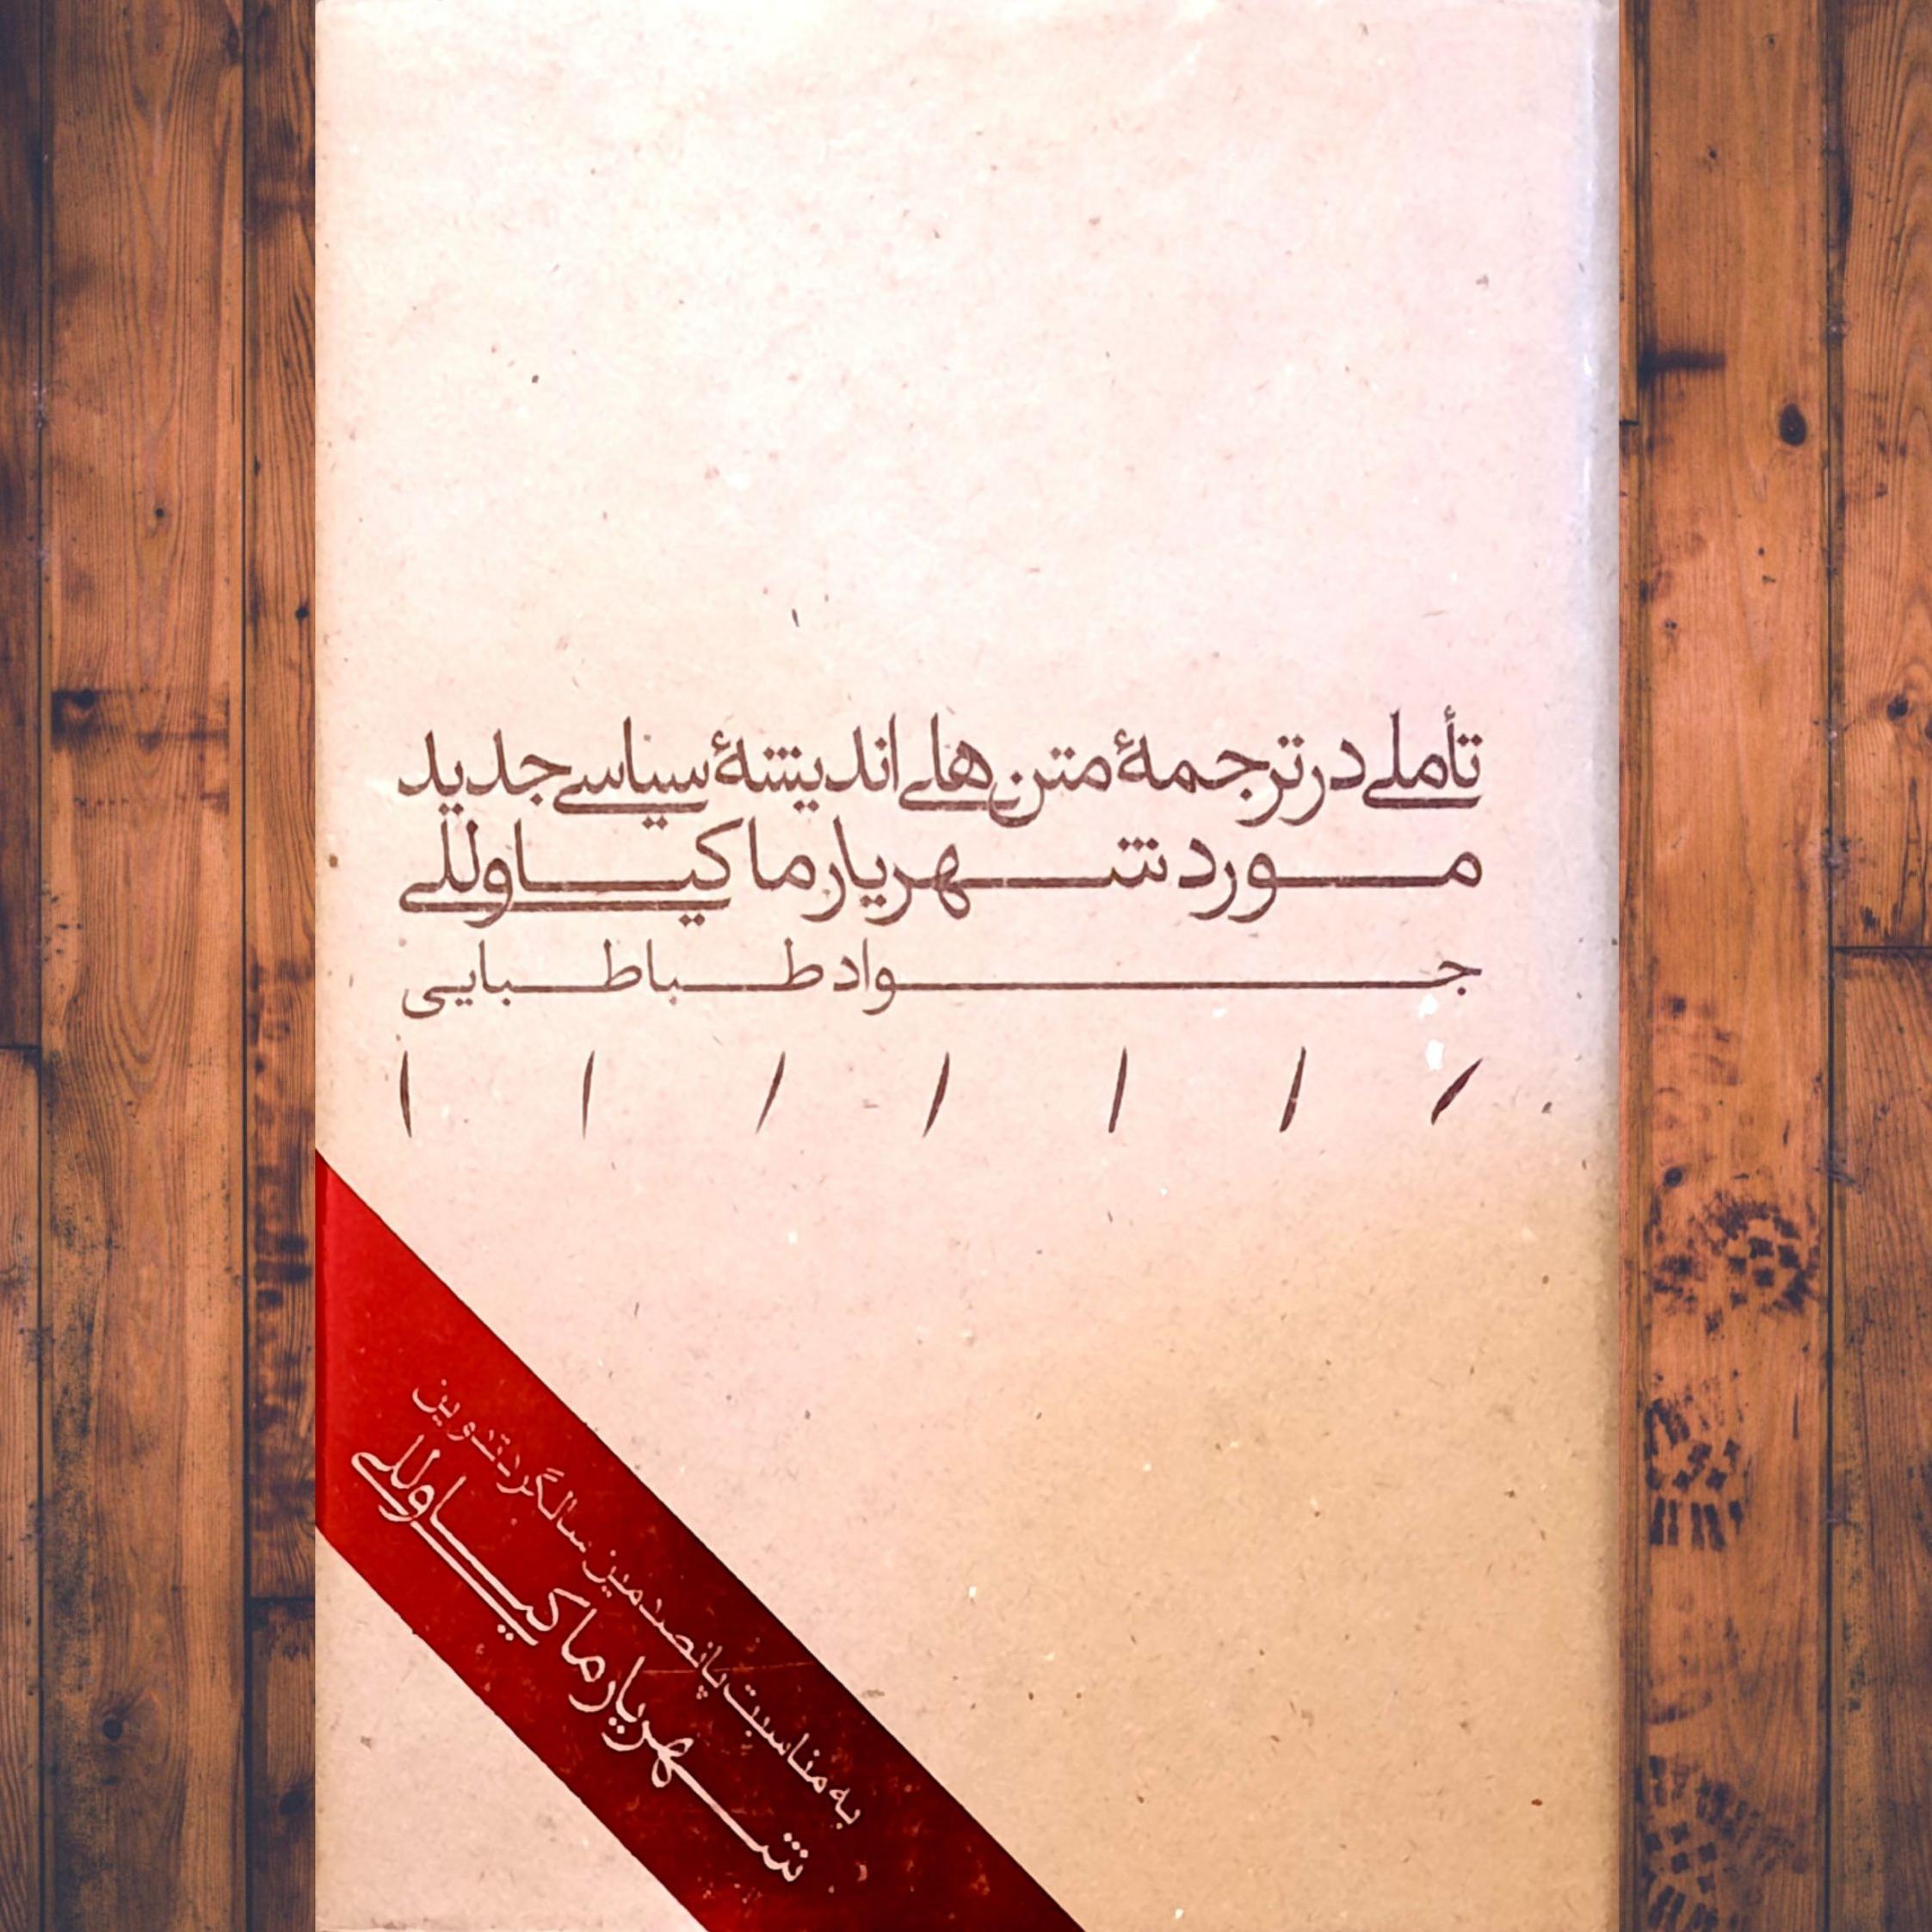 تأملی در ترجمهٔ متن‌های اندیشهٔ سیاسی جدید
مورد شهریار ماکیاوللی
جواد طباطبایی
به مناسبت پانصدمین سالگرد تدوین
شهریار ماکیاوللی